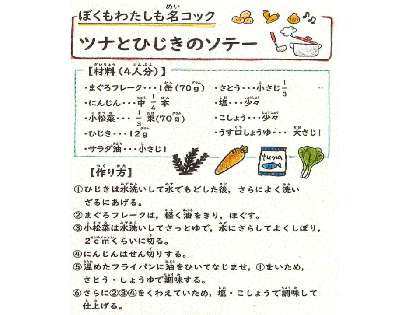 ぼくもわたしも名コック
ツナとひじきのソテー
【材料(4人分)】
・まぐろフレーク・・・1缶(70g)
・にんじん・・・中1/4本
・小松菜・・・1/3束(70g)
・ひじき・・・12g
・サラダ油・・・小さじ1
・さとう・・・小さじ1/3
・塩・・・少々
・こしょう・・・少々
・うす口しょうゆ・・・大さじ1
tuna
【作り方】
①ひじきは水洗いして水でもどした後、さらによく洗い
ざるにあげる。
②まぐろフレークは、軽く油をきり、ほぐす。
③小松菜は水洗いしてさっとゆで、水にさらしてよくしぼり、
2cmくらいに切る。
④にんじんはせん切りする。
⑤温めたフライパンに油をひいてなじませ、①をいため、
さとう・しょうゆで調味する。
⑥さらに②③④をくわえていため、塩・こしょうで調味して
仕上げる。